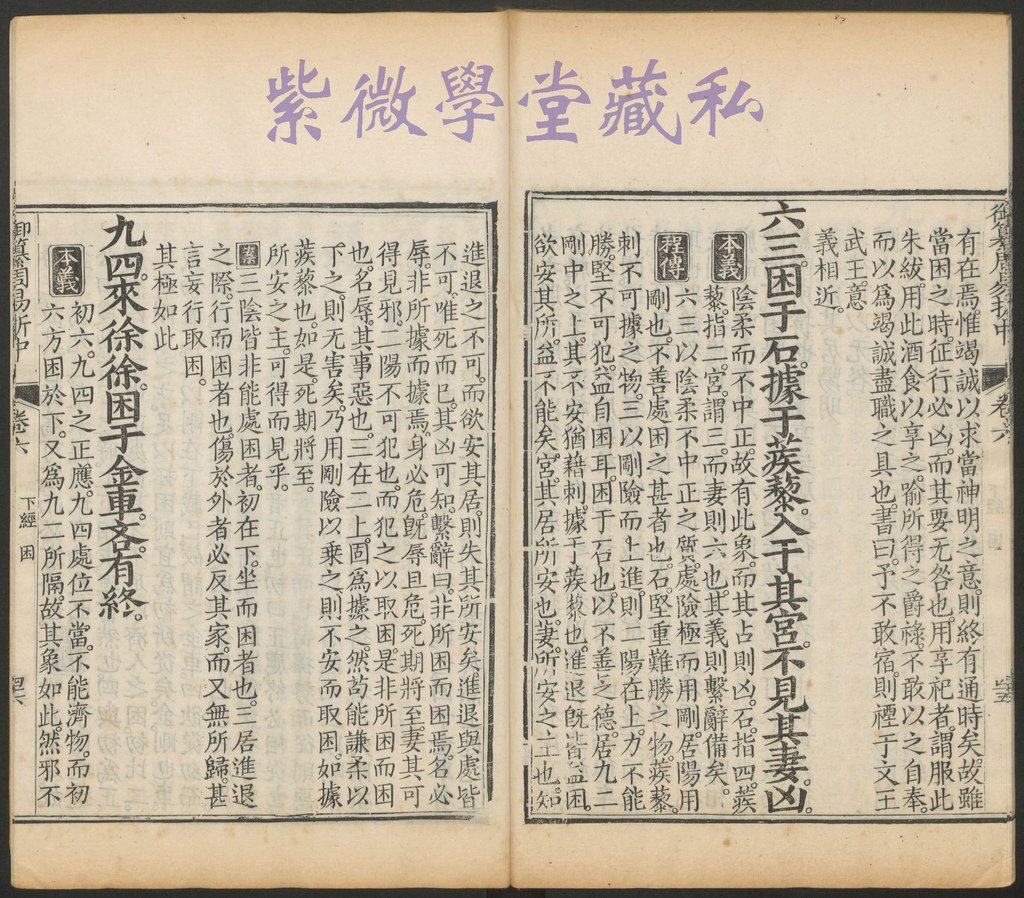 紫微學堂藏私
御纂周易折中 卷六
有在焉。惟竭誠以求當神明之意。則終有通時矣。故雖
當困之時。征行必凶。而其要无咎也。用享祀者。謂服此
朱紱。用此酒食以享之。喻所得之爵祿。不敢以之自奉。
而以為竭誠盡職之具也。書曰。予不敢宿。則禋于文王
武王。意
義相近。
六三。困于石。據于蒺藜。入于其宮。不見其妻。凶。
本義 陰柔而不中正。故有此象。而其占則凶。石。指四。蒺
藜。指二。宮。謂三。而妻則六也。其義則繫辭備矣。
程傳 六三以陰柔不中正之質。處險極而用剛。居陽用
剛也。不善處困之甚者也。石。堅重難勝之物。蒺藜。
刺不可據之物。三以剛險而上進。則二陽在上。力不能
勝。堅不可犯。益自困耳。困于石也。以不善之德。居九二
剛中之上。其不安猶藉刺。據于蒺藜也。進退既皆益困。
欲安其所。益不能矣。宮。其居所安也。妻。所安之主也。知
進退之不可。而欲安其居。則失其所安矣。進退與處皆
不可。唯死而已。其凶可知。繫辭曰。非所困而困焉。名必
辱。非所據而據焉。身必危。既辱且危。死期將至。妻其可
得見邪。二陽不可犯也。而犯之以取困。是非所困而困
也。名辱。其事惡也。三在二上。固為據之。然苟能謙柔以
下之。則无害矣。乃用剛險以乘之。則不安而取困。如據
蒺藜也。如是。死期將至。
所安之主。可得而見乎。
案 三陰皆非能處困者。初在下。坐而困者也。三居進退
之際。行而困者也。傷於外者必反其家。而又無所歸。甚
言妄行取困。
其極如此
九四。來徐徐。困于金車。吝。有終。
本義 初六。九四之正應。九四處位不當。不能濟物。而初
六方困於下。又為九二所隔。故其象如此。然邪不
御纂周易折中 卷六 下經 困